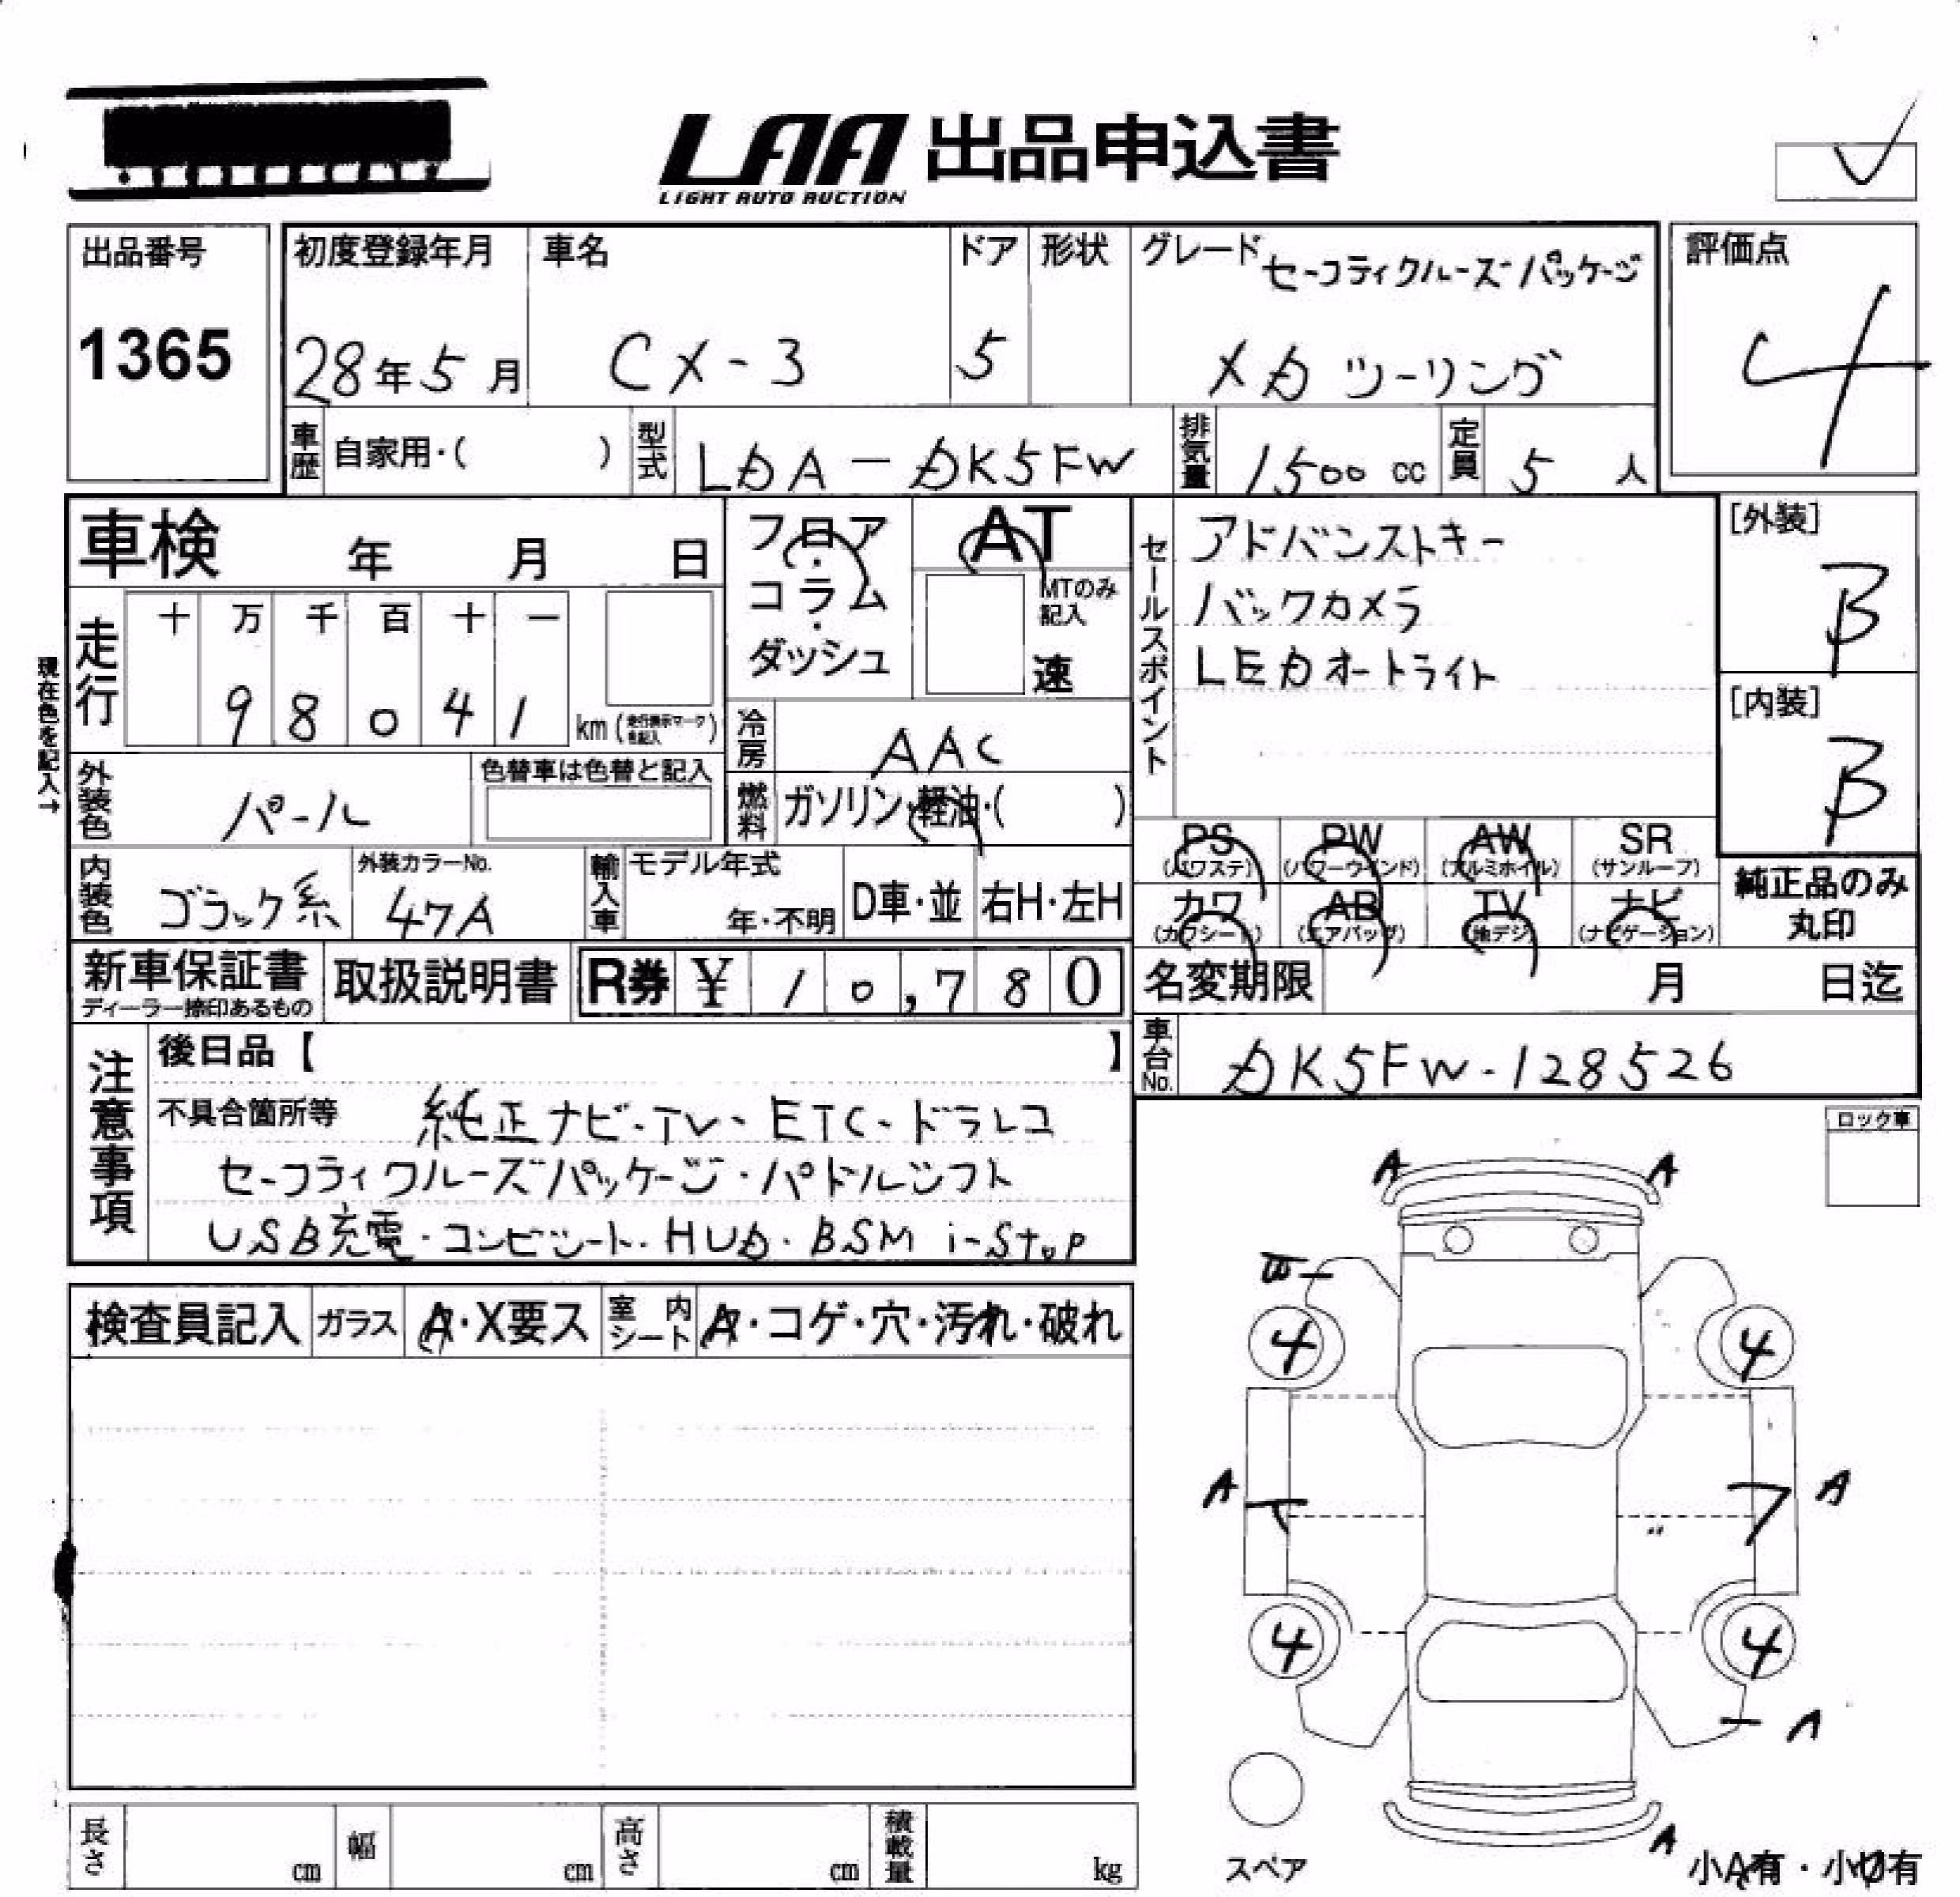 LAA 出品申込書
LIGHT AUTO AUCTION
出品番号
1365
初度登録年月
28年5月
車名
CX-3
ドア
5
形状
グレード セーフティクルーズパッケージ
XD ツーリング
評価点
4
車歴 自家用・( )
型式 LDA-DK5FW
排気量 1500 cc
定員 5 人
車検 年 月 日
フロア・コラム・ダッシュ
AT
MTのみ記入
速
セールスポイント
アドバンストキー
バックカメラ
LEDオートライト
[外装]
B
[内装]
B
現在色を記入→
走行
十 万 千 百 十 一
9 8 0 4 1
km (走行表示マーク色記入)
冷房 AAC
燃料 ガソリン・軽油・( )
外装色 パール
色替車は色替と記入
内装色 ブラック系
外装カラーNo.
47A
輸入車 モデル年式
年・不明
D車・並
右H・左H
PS (パワステ)
PW (パワーウインド)
AW (アルミホイル)
SR (サンルーフ)
カワ (カワシート)
AB (エアバッグ)
TV (地デジ)
ナビ (ナビゲーション)
純正品のみ丸印
新車保証書
ディーラー捺印あるもの
取扱説明書
R券 ¥ 10,780
名変期限 月 日迄
車台No. DK5FW-128526
注意事項
後日品【 】
不具合箇所等 純正ナビ・TV・ETC・ドラレコ
セーフティクルーズパッケージ・パドルシフト
USB充電・コンビシート・HUD・BSM i-stop
ロック車
検査員記入
ガラス A・X要ス
室内シート A・コゲ・穴・汚れ・破れ
A A
4 4
A A
4 4
A
A
スペア
小A有・小U有
長さ cm
幅 cm
高さ cm
積載量 kg